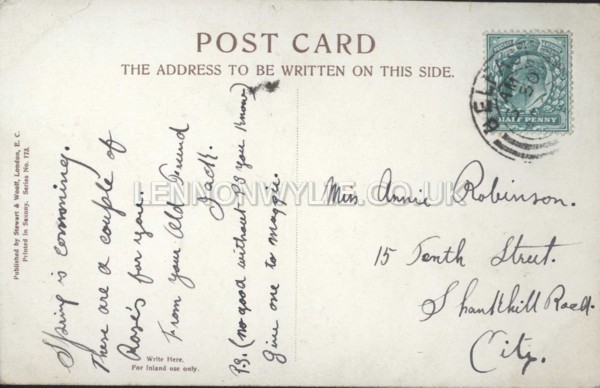 POST CARD
THE ADDRESS TO BE WRITTEN ON THIS SIDE.
HALF PENNY
Published by Stewart & Woolf, London, E. C.
Printed in Saxony. Series No. 173.
Spring is comming.
There are a couple of
Rose's for you.
From your Old Friend
Jack.
P.S. (no good without PS you know)
Give one to Maggie.
Write Here.
For Inland use only.
Miss Annie Robinson.
15 Tenth Street.
Shankhill Road.
City.
LENNONWYLIE.CO.UK